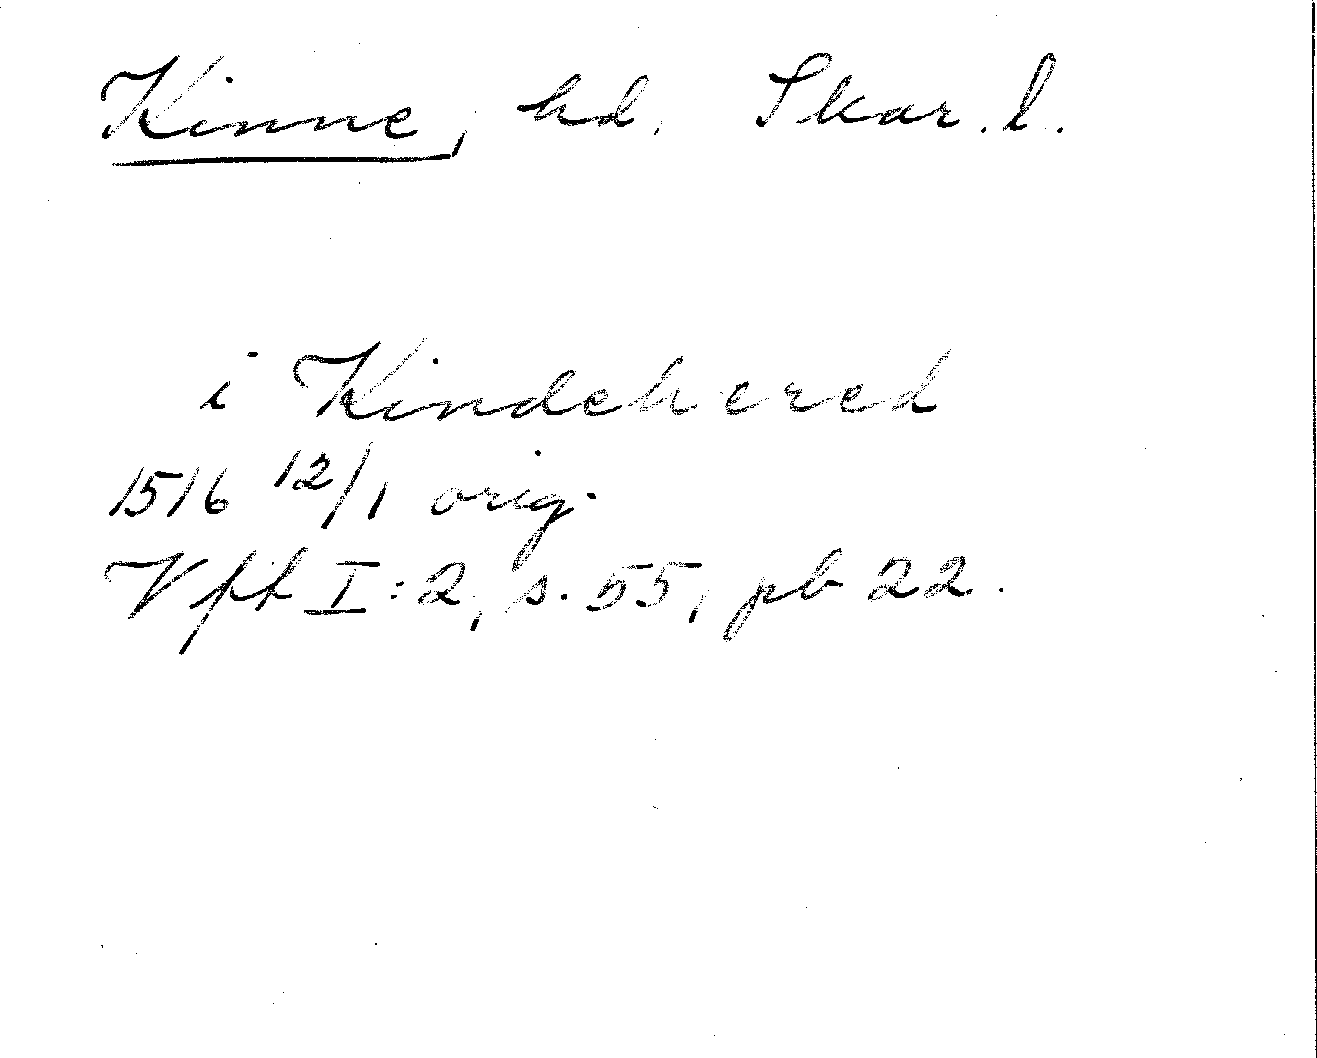 Kinne, hd. Skar. l.
i Kindehered
1516 12/1 orig.
Vft I:2, s. 55, pb 22.